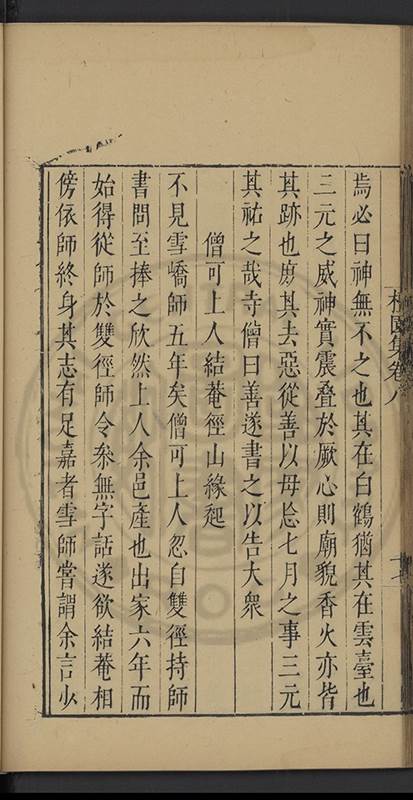 焉必曰神無不之也其在白鶴猶其在雲臺也
三元之威神實震疊於厥心則廟貌香火亦皆
其跡也庻其去惡從善以毋忿七月之事三元
其祐之哉寺僧曰善遂書之以告大衆
僧可上人結菴徑山緣起
不見雪嶠師五年矣僧可上人忽自雙徑持師
書問至捧之欣然上人余邑產也出家六年而
始得從師於雙徑師令叅無字話遂欲結菴相
傍依師終身其志有足嘉者雪師嘗謂余言少
園集卷八